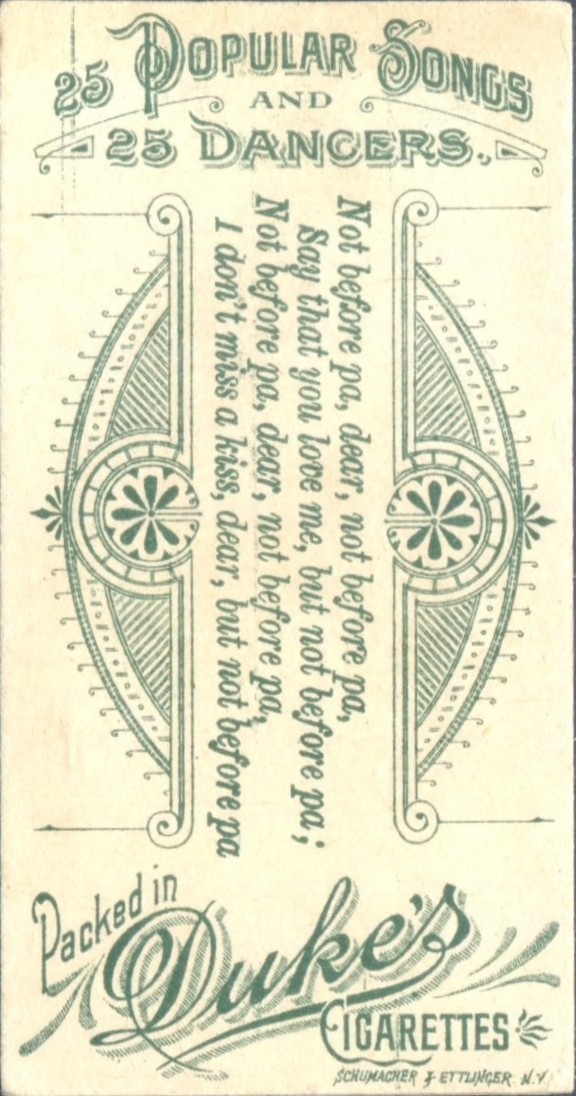 25 POPULAR SONGS
AND
25 DANCERS.
Not before pa, dear, not before pa,
Say that you love me, but not before pa;
Not before pa, dear, not before pa,
I don't miss a kiss, dear, but not before pa
Packed in
Duke's
CIGARETTES
SCHUMACHER & ETTLINGER N.Y.